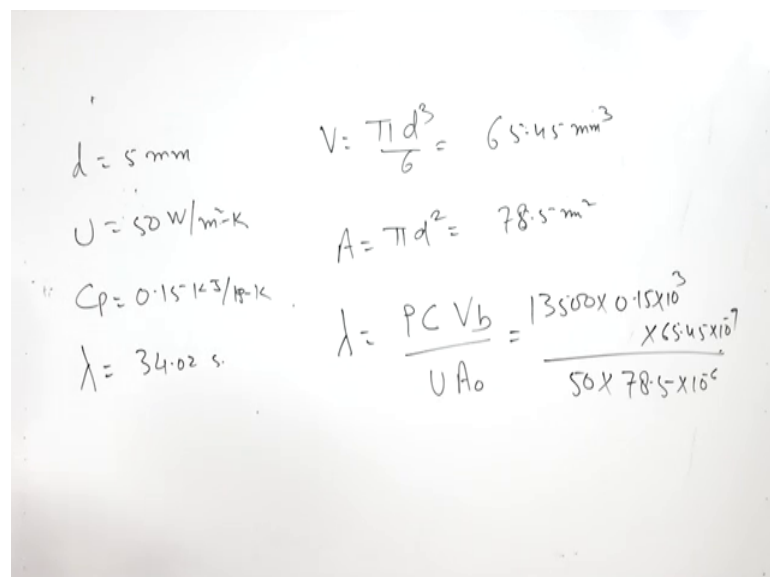 d = 5 mm
U = 50 W/m²-K
Cp = 0.15 KJ/kg-K
λ = 34.02 s.
V = πd³/6 = 65.45 mm³
A = πd² = 78.5 m²
λ = ρC Vb / U A₀ = 13500 × 0.15×10³ × 65.45×10⁻⁹ / 50 × 78.5×10⁻⁶